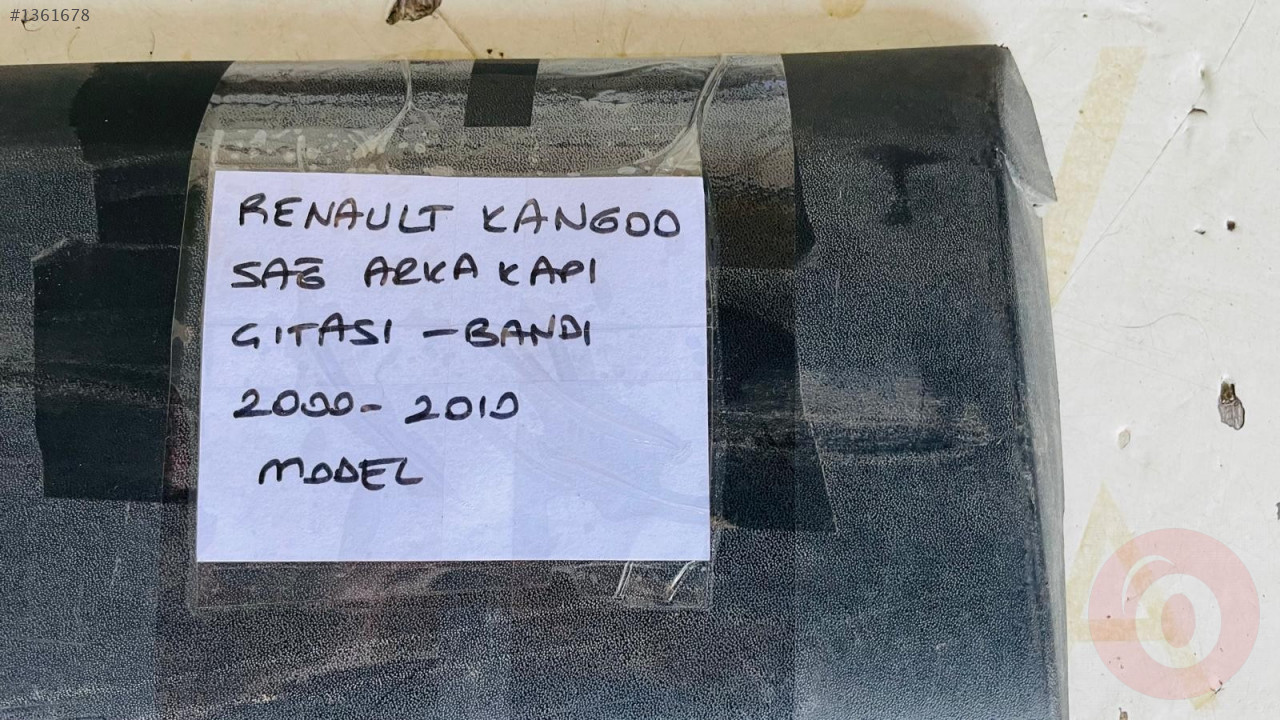 #1361678
RENAULT KANGOO
SAĞ ARKA KAPI
ÇITASI - BANDI
2000- 2010
MODEL